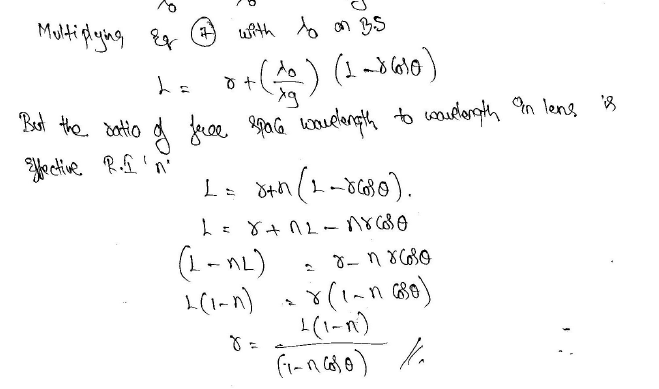 Multiplying Eq ⑦ with λ₀ on B.S
L = r + (λ₀/λg) (L - r cosθ)
But the ratio of free space wavelength to wavelength in lens is
effective R.I 'n'
L = r+n (L - r cosθ).
L = r + nL - nr cosθ
(L - nL) = r - n r cosθ
L(1-n) = r(1-n cosθ)
r = L(1-n) / (1-n cosθ) //.